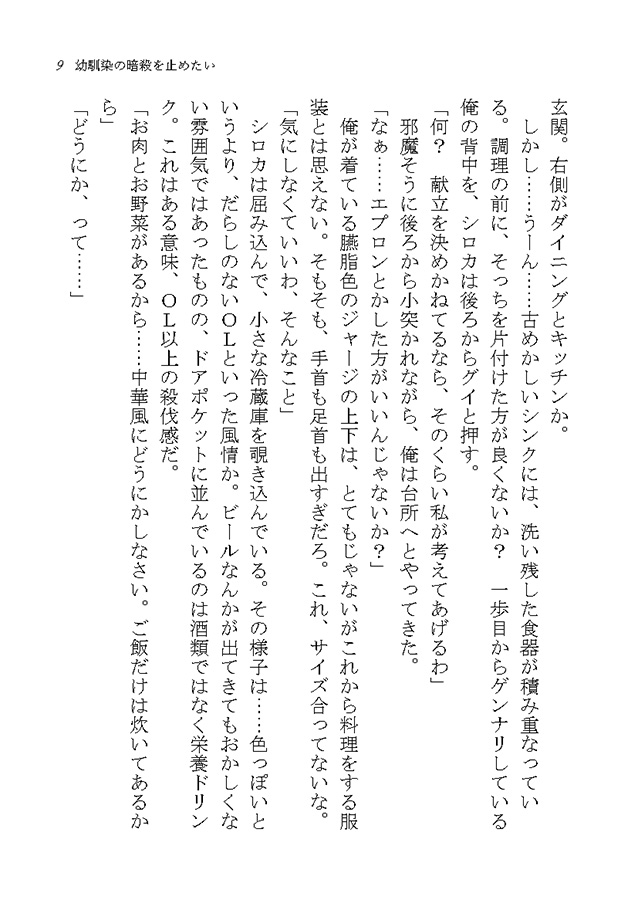 9 幼馴染の暗殺を止めたい
玄関。右側がダイニングとキッチンか。
　しかし……うーん……古めかしいシンクには、洗い残した食器が積み重なってい
る。調理の前に、そっちを片付けた方が良くないか？　一歩目からゲンナリしている
俺の背中を、シロカは後ろからグイと押す。
「何？　献立を決めかねてるなら、そのくらい私が考えてあげるわ」
　邪魔そうに後ろから小突かれながら、俺は台所へとやってきた。
「なぁ……エプロンとかした方がいいんじゃないか？」
　俺が着ている臙脂色のジャージの上下は、とてもじゃないがこれから料理をする服
装とは思えない。そもそも、手首も足首も出すぎだろ。これ、サイズ合ってないな。
「気にしなくていいわ、そんなこと」
　シロカは屈み込んで、小さな冷蔵庫を覗き込んでいる。その様子は……色っぽいと
いうより、だらしのないＯＬといった風情か。ビールなんかが出てきてもおかしくな
い雰囲気ではあったものの、ドアポケットに並んでいるのは酒類ではなく栄養ドリン
ク。これはある意味、ＯＬ以上の殺伐感だ。
「お肉とお野菜があるから……中華風にどうにかしなさい。ご飯だけは炊いてあるか
ら」
「どうにか、って……」